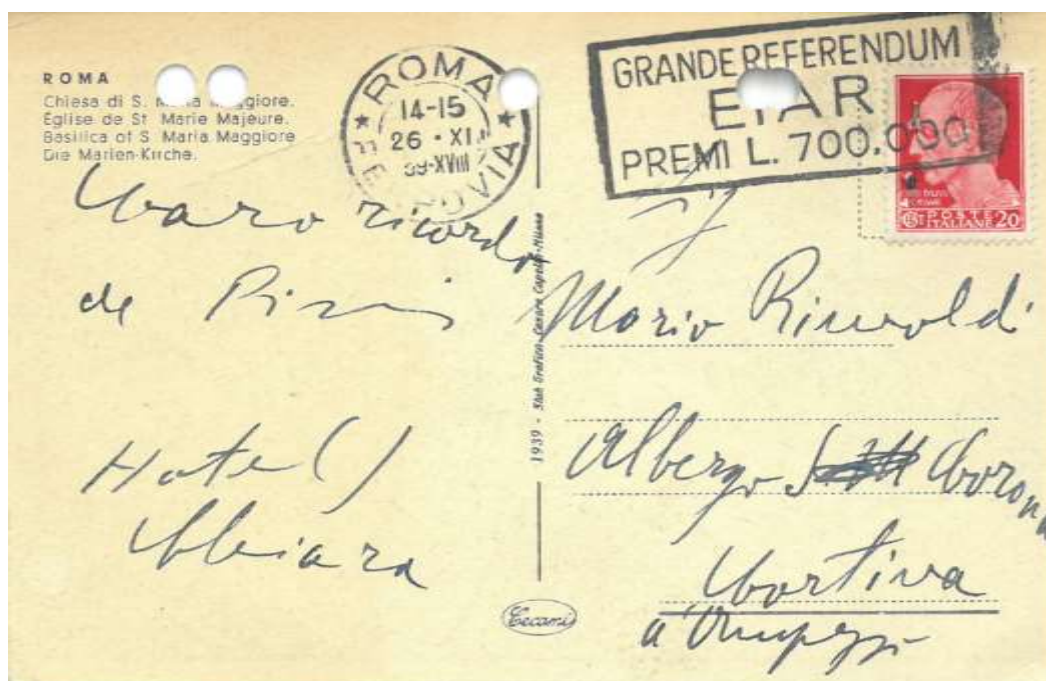 ROMA
Chiesa di S. Maria Maggiore.
Église de St Marie Majeure.
Basilica of S Maria Maggiore
Die Marien-Kirche.
ROMA
14-15
26 · XI
39-XVIII
FERROVIA
GRANDE REFERENDUM
EIAR
PREMI L. 700.000
POSTE
ITALIANE 20
Caro ricordo
de Pisis
Hotel
Chiara
1939 - Stab Grafico Cesare Capello-Milano
Cecami
Mario Rimoldi
Albergo Corona
Cortina
d'Ampezzo